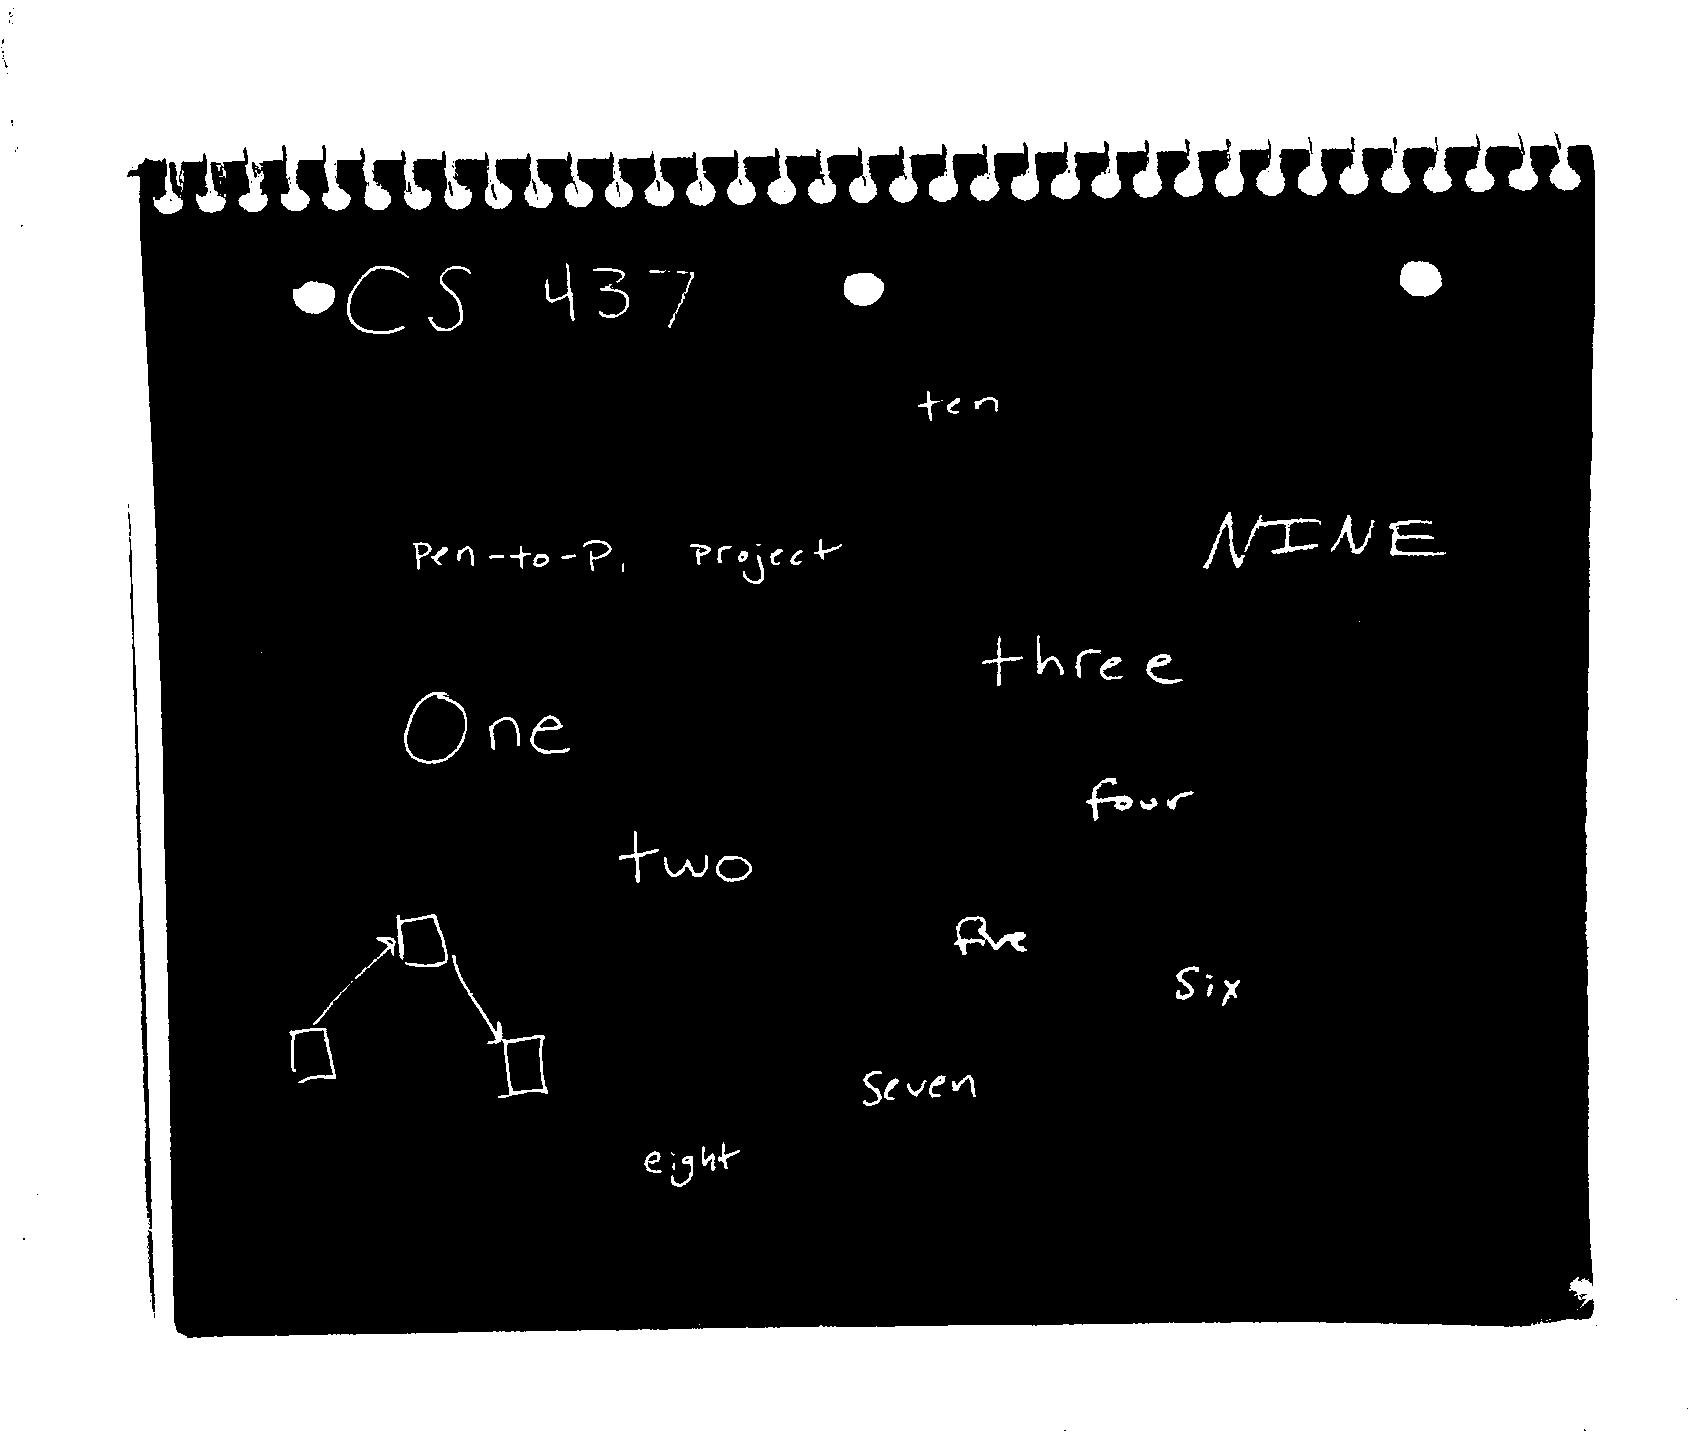 CS 437
ten
Pen-to-P. project
NINE
three
One
four
two
five
six
seven
eight